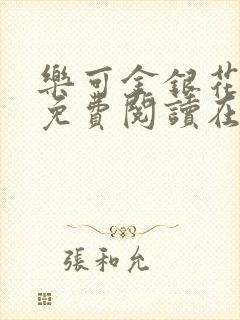 樂可金銀花
免費閱讀在
張和允